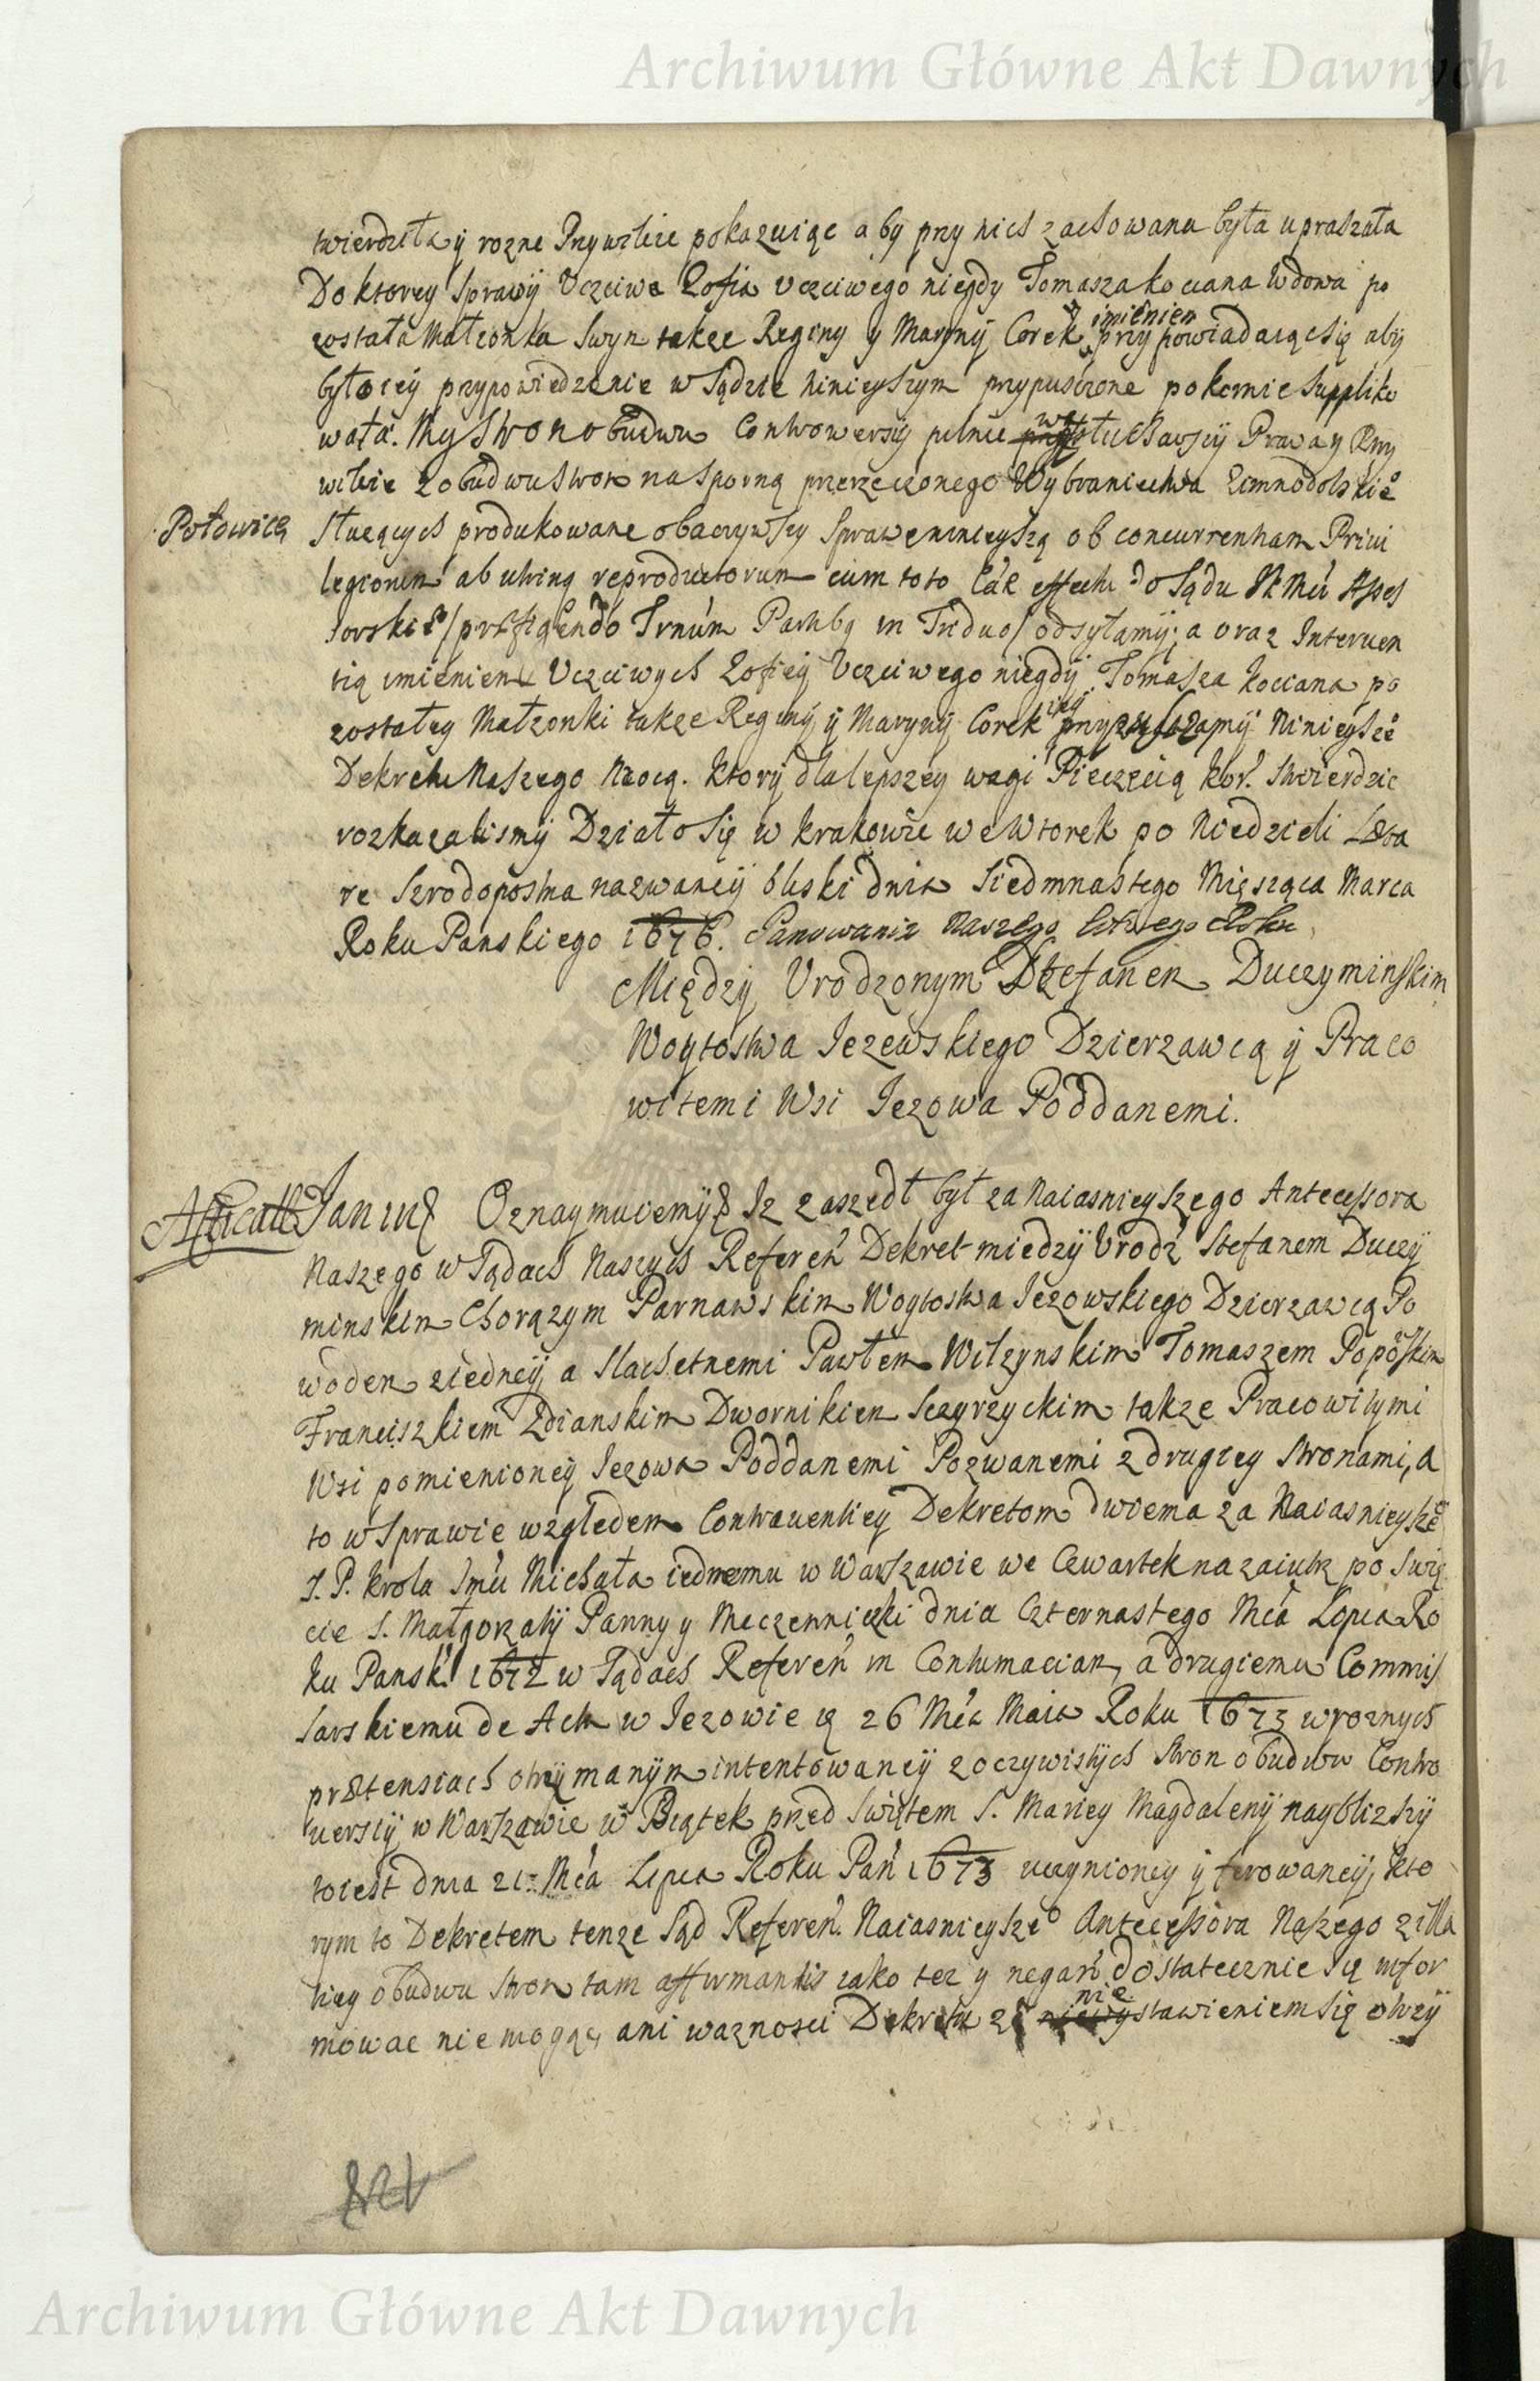 Archiwum Główne Akt Dawnych
twierdziła y rozne Przywileie pokazuiąc aby przy nich zachowana była upraszała
Do ktorey Sprawy Uczciwa Zofia Uczciwego niegdy Tomasza Kociana Wdowa po
zostala Małzonka Swym takze Reginy y Maryny Corek imieniem przypowiadaiąc się aby
było iey przypowiedzenie w Sądzie ninieyszym przypuszczone pokornie Suppliko
wała. My Stron obudwu Controwersiy pilnie wysłuchawszy Prawa y Przy
wileie z obudwu Stron na Sporną przerzeczonego Wybraniectwa Zimnodolskie°
Połowicę
Słuzących produkowane obaczywszy Sprawę ninieyszą ob concurrentiam Privi
legiorum ab utrinq reproductorum cum toto Cáe effectu do Sądu N. Mci Asses
sorskie° /præfigendo Trnum Partibq in Triduo/ odsyłamy; a oraz Interuen
tią imieniem Uczciwych Zofiey Uczciwego niegdy Tomasza Kociana po
zostałey Małzonki takze Reginy y Maryny Corek iey przypuszczamy Ninieysze°
Dekretu Naszego Mocą. Ktory dla lepszey wagi Pieczęcią Kor. Stwierdzic
rozkazalismy Działo się w Krakowie we Wtorek po Niedzieli Læta
re Szrodopostna nazwaney bliski dnia Siedmnastego Miesząca Marca
Roku Panskiego 1676. Panowania Naszego Roku
Między Urodzonym Stefanem Duczyminskim
Woytostwa Iezewskiego Dzierzawcą y Praco
witemi Wsi Iezowa Poddanemi.
Jan III Oznaymuiemy & Iz zaszedł był za Naiasnieyszego Antecessora
Naszego w Sądach Naszych Referen̄ Dekret miedzy Urodz Stefanem Duczy
minskim Chorązym Parnawskim Woytostwa Iezowskiego Dzierzawcą Po
wodem z iedney a Slachetnemi Pawłem Wilzynskim Tomaszem
Franciszkiem Zdianskim Dwornikiem Sczyrzyckim takze Pracowitymi
Wsi pomienioney Iezowa Poddanemi Pozwanemi z drugiey Stronami, a
to w Sprawie względem Contrauentiey Dekretom dwiema za Naiasnieysze°
S. P. Krola Jmci Michała iednemu w Warszawie we Czwartek nazaiutrz po Swię
cie S. Małgorzaty Panny y Meczenniczki dnia Czternastego Mca Lipca Ro
ku Pansk. 1672 w Sądach Referen̄ in Contumaciam, a drugiemu Commis
sarskiemu de Actu w Iezowie 26 Mca Maia Roku 1673 w roznych
prætensiach otrzymanym intentowaney z oczywistych Stron obudwu Contro
uersiy w Warszawie w Piątek przed Swiętem S. Mariey Magdaleny naybliższy
to iest dnia 21 Mca Lipca Roku Pań 1673 uczynioney y ferowaney, kto
rym to Dekretem tenze Sąd Referen̄. Naiasnieysze° Antecessora Naszego z illa
tiey obudwu Stron tam affirmantis iako tez y negan̄ dostatecznie się infor
mowac nie mogąc, ani waznosci Dekretu z nie stawieniem się otrzy
Archiwum Główne Akt Dawnych